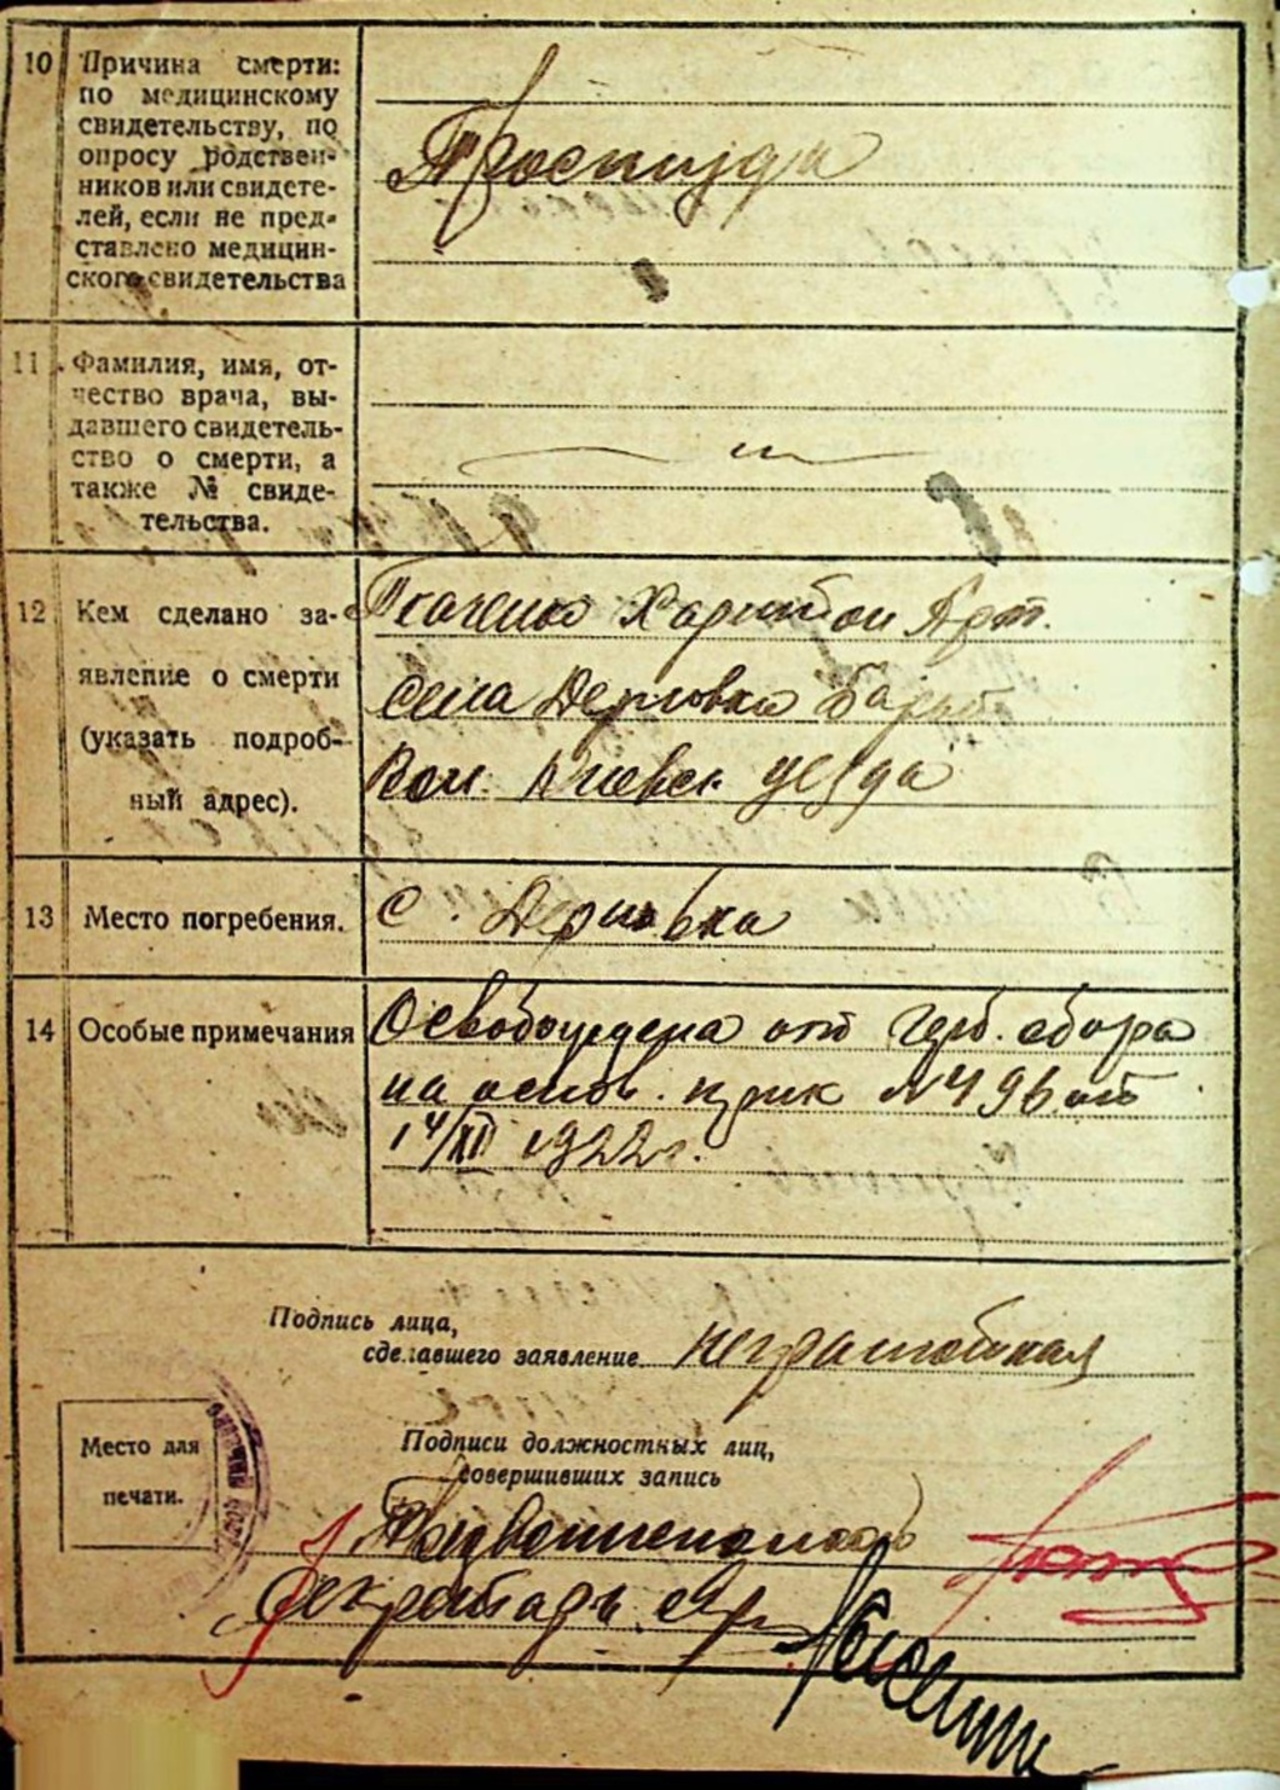 10 Причина смерти:
по медицинскому
свидетельству, по
опросу родствен-
ников или свидете-
лей, если не пред-
ставлено медицин-
ского свидетельства
Простуда
11 Фамилия, имя, от-
чество врача, вы-
давшего свидетель-
ство о смерти, а
также № свиде-
тельства.
12 Кем сделано за-
явление о смерти
(указать подроб-
ный адрес).
Харитон Арт.
села Дерновки
Вол. Киевск. уезда
13 Место погребения.
с. Дерновка
14 Особые примечания
Освобождена от герб. сбора
на основ. № 496 от
14/XII 1922 г.
Подпись лица,
сделавшего заявление неграмотная
Место для
печати.
Подписи должностных лиц,
совершивших запись
Секретарь